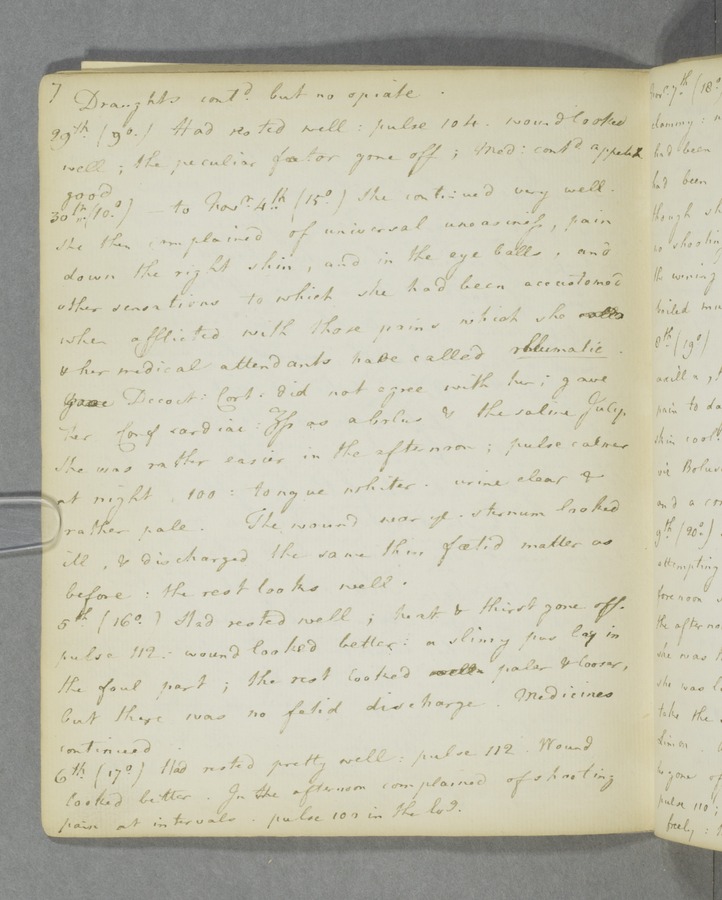 7 Draughts contd. but no opiate.
29th (9o.) Had rested well: pulse 104. wound looked
well; the peculiar fœtor gone off; Med: contd appetite
good
30th (10.o) — to Novr. 4th (15o) She continued very well.
She then complained of universal uneasiness, pain
down the right shin, and in the eye balls, and
other sensations to which she had been accustomed
when afflicted with those pains which she
& her medical attendants have called rheumatic.
Decoct: Cort: did not agree with her; gave
her Conf cardiac: ʒss as a bolus & the saline Julep.
She was rather easier in the afternoon; pulse calmer
at night. 100: tongue whiter. urine clear &
rather pale. The wound near ye. sternum looked
ill, & discharged the same thin fœtid matter as
before: the rest looks well.
5th (16o.) Had rested well; heat & thirst gone off.
pulse 112: wound looked better: a slimy pus lay in
the foul part; the rest looked paler & looser,
but there was no fœtid discharge. Medicines
continued.
6th (17o) Had rested pretty well: pulse 112. Wound
looked better. In the afternoon complained of shooting
pain at intervals. pulse 100 in the
Novr. 7th (18o
clammy:
had been
had been
though sh
no shootin
the evening
8th (19o)
pain to da
skin cool:
and a co
9th (20o)
attempting
forenoon
the afterno
she was
she was
take the
be gone of
pulse 110;